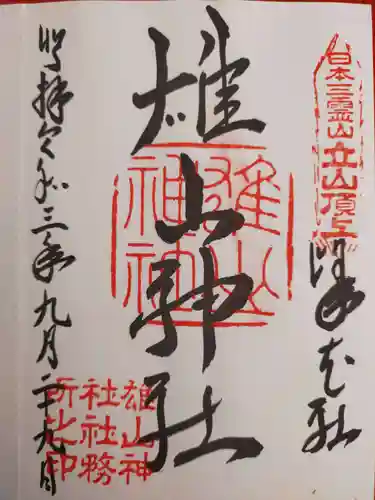 日本三霊山立山頂上
峰本社
雄山神社
雄山神
社社務
所之印
登拝令和三年九月二十九日